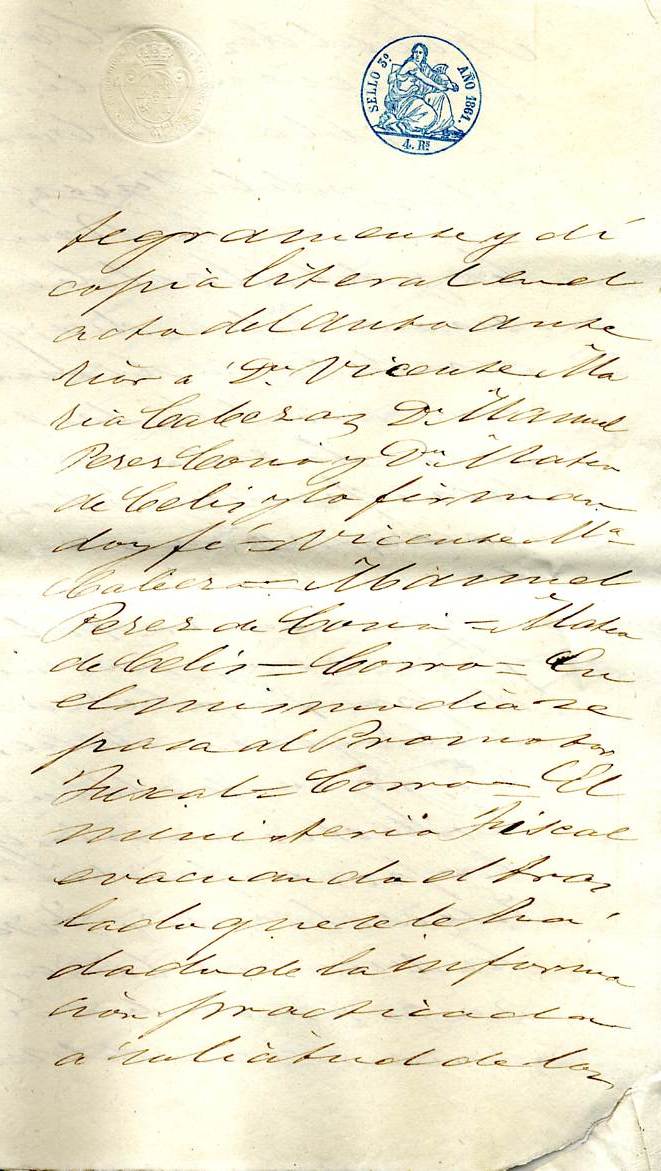 SELLO 3º AÑO 1861.
4. Rs
tegramente y dí
copia literal en el
acto del auto ante
rior a Dn. Vicente Ma
ria Cabeza, Dn. Manuel
Perez Cosio y Dn. Mateo
de Celis y lo firman
doy fé = Vicente Mª
Cabeza = Manuel
Perez de Cosio = Mateo
de Celis = Corro = En
el mismo dia se
pasa al Promotor
Fiscal = Corro = El
ministerio Fiscal
evacuando el tras
lado que se le ha
dado de la informa
ción practicada
a solicitud de los